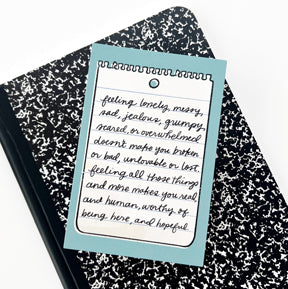 feeling lonely, messy,
sad, jealous, grumpy,
scared, or overwhelmed
doesn't make you broken
or bad, unlovable or lost.
feeling all those things
and more makes you real
and human, worthy of
being here, and hopeful.